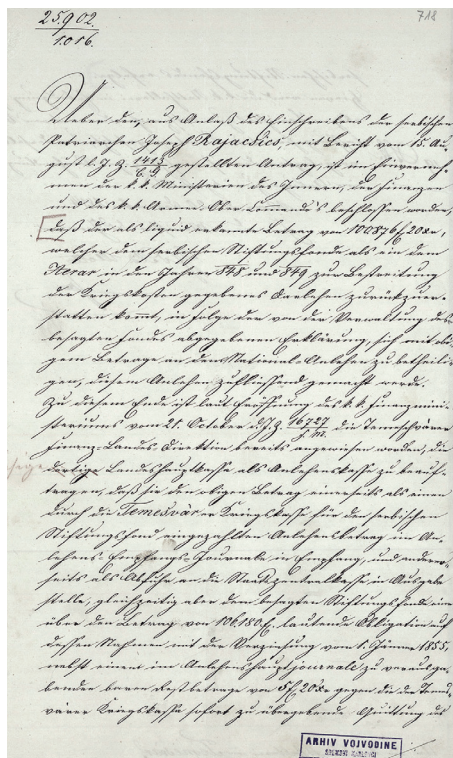 25.902.
1016.
718
Ueber den, aus Anlaß des Einschreitens des serbischen
Patriarchen Joseph Rajacsics, mit Bericht vom 15. Au-
gust l. J. Z. 1413 gestellten Antrag, ist im Einverneh-
men der k. k. Ministerien des Innern, der Finanzen
und des k. k. Armee Ober Commando's beschlossen worden,
daß der als liquid erkannte Betrag von 100876 f 20 xr,
welcher dem serbischen Stiftungsfonde als ein dem
Aerar in den Jahren 848 und 849 zur Bestreitung
der Kriegskosten gegebenes Darlehen zurückzuer-
statten kommt, in Folge der von der Verwaltung des
besagten Fondes abgegebenen Erklärung, sich mit obi-
gem Betrage an dem National-Anlehen zu betheili-
gen, diesem Anlehen zufließend gemacht werde.
Zu diesem Ende ist laut Eröffnung des k. k. Finanzmini-
steriums vom 21. October d. J. Z. 16727 die Temeschvárer
Finanz-Landes-Direktion bereits angewiesen worden, die
dortige Landeshauptkasse als Anlehenskasse zu beauf-
tragen, daß sie den obigen Betrag einerseits als einen
durch die Temesvárer Kriegskasse für den serbischen
Stiftungsfond eingezahlten Anlehensbetrag im An-
lehens-Empfangs-Journale in Empfang, und anderer-
seits als Abfuhr an die Staatszentralkasse in Ausgabe
stelle, gleichzeitig aber dem besagten Stiftungsfonde eine
über den Betrag von 106180 f. lautende Obligation auf
dessen Nahmen mit der Verzinsung vom 1. Jänner 1855,
nebst einem im Anlehenshauptjournale zu verausga-
benden baren Restbetrage von 5 f 20 xr gegen die der Temes-
várer Kriegskasse sofort zu übergebende Quittung des
ARHIV VOJVODINE
SREMSKI KARLOVCI